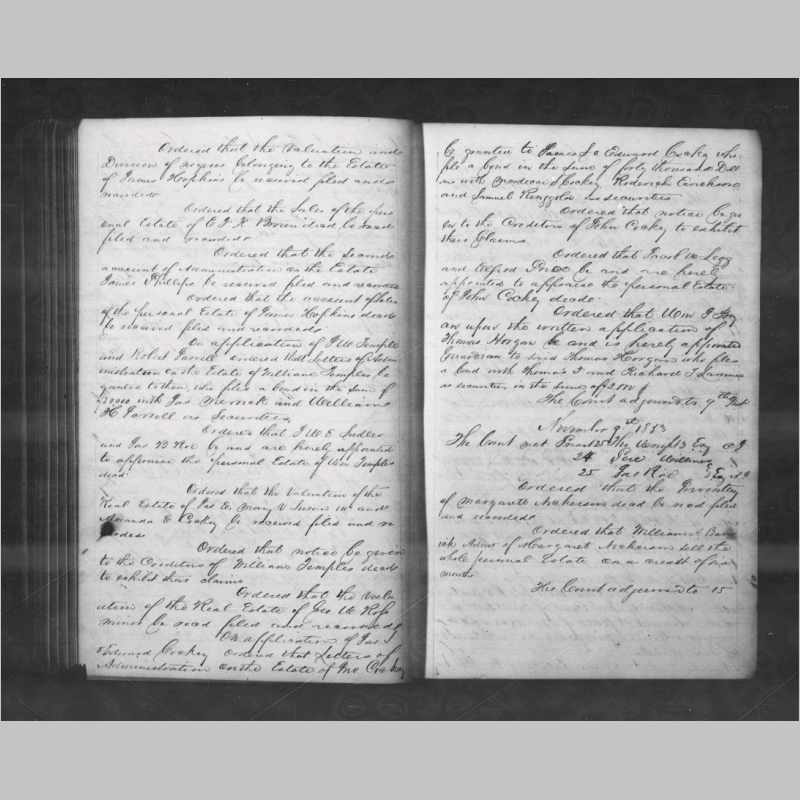 Ordered that the Valuation and
Division of negroes belonging to the Estate
of James Hopkins be received filed and
recorded
Ordered that the Sales of the per
sonal Estate of E J K Brown decd be
filed and recorded
Ordered that the Second
account of Administration on the Estate
James Phillips be received filed and recorded
Ordered that the account of Sales
of the personal Estate of James Hopkins decd
be received filed and recorded
On application of J W Temple
and Robert ordered that Letters of Admi
nistration on the Estate of William Temples be
granted to them, who files a bond in the Sum of
with Jas Merrick and William
H as Securities
Ordered that J W E Sudler
and Jas B Roe be and are hereby appointed
to appraise the personal Estate of Wm Temples
decd
Ordered that the Valuation of the
Real Estate of Jas E Mary V and
Amanda E Coskey be received filed and re
corded
Ordered that notice be given
to the Creditors of William Temples decd
to exhibit their claims
Ordered that the valu
ation of the Real Estate of Geo W Ross
minor be read filed and recorded
On application of Jas
& Edward Coskey ordered that Letters of
Administration on the Estate of Jno Coskey
be granted to James J & Edward Coskey who
file a bond in the Sum of forty thousand Doll
ars with Coskey Roderick
and Samuel Ringgold as securities
Ordered that notice be giv
en to the Creditors of John Coskey to exhibit
their Claims
Ordered that Jacob W Legg
and Price be and are hereby
appointed to appraise the personal Estate
of John Coskey decd
Ordered that Wm J
an upon the written application of
Thomas Horgan be and is hereby appointed
Guardian to said Thomas Horgan who files
a bond with Thomas J and Richard T
as securities in the Sum of
The Court adjourned to 9th
November 9th 1853
The Court met Present 25 Thy Esq C J
24
25 Jas Roe Esq
Ordered that the Inventory
of Margarett decd be read filed
and recorded
Ordered that William
Admr of Margaret sell the
whole personal Estate on a credit of six
months
The Court adjourned to 15